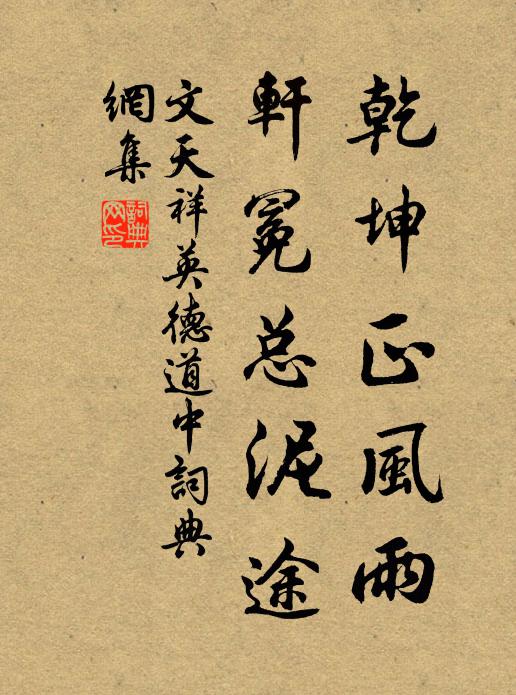 乾坤正風雨
軒冕总泥途
文天祥英德道中詞典
網集
詞典
网印